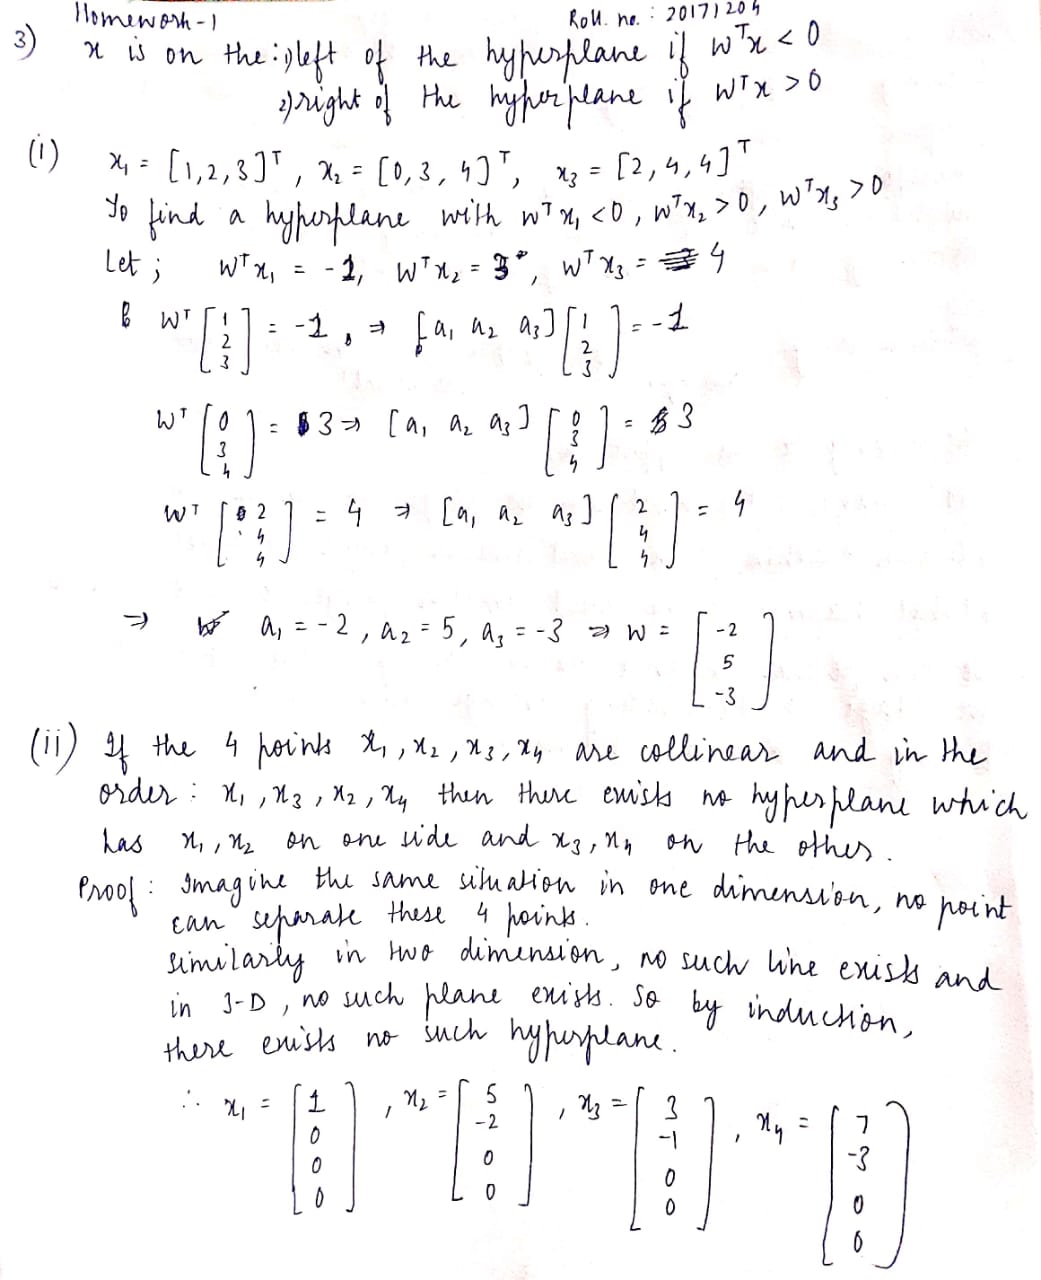 Homework-1 Roll. no. : 20171204
3) x is on the: 1) left of the hyperplane if wᵀx < 0
2) right of the hyperplane if wᵀx > 0
(i) x₁ = [1,2,3]ᵀ, x₂ = [0,3,4]ᵀ, x₃ = [2,4,4]ᵀ
To find a hyperplane with wᵀx₁ < 0, wᵀx₂ > 0, wᵀx₃ > 0
Let ; wᵀx₁ = -1, wᵀx₂ = 3, wᵀx₃ = 4
wᵀ [1 2 3] = -1, ⇒ [a₁ a₂ a₃] [1 2 3] = -1
wᵀ [0 3 4] = 3 ⇒ [a₁ a₂ a₃] [0 3 4] = 3
wᵀ [2 4 4] = 4 ⇒ [a₁ a₂ a₃] [2 4 4] = 4
⇒ a₁ = -2, a₂ = 5, a₃ = -3 ⇒ w = [-2 5 -3]
(ii) If the 4 points x₁, x₂, x₃, x₄ are collinear and in the
order : x₁, x₃, x₂, x₄ then there exists no hyperplane which
has x₁, x₂ on one side and x₃, x₄ on the other.
Proof : Imagine the same situation in one dimension, no point
can separate these 4 points.
Similarly in two dimension, no such line exists and
in 3-D, no such plane exists. So by induction,
there exists no such hyperplane.
∴ x₁ = [1 0 0 0], x₂ = [5 -2 0 0], x₃ = [3 -1 0 0], x₄ = [7 -3 0 0]